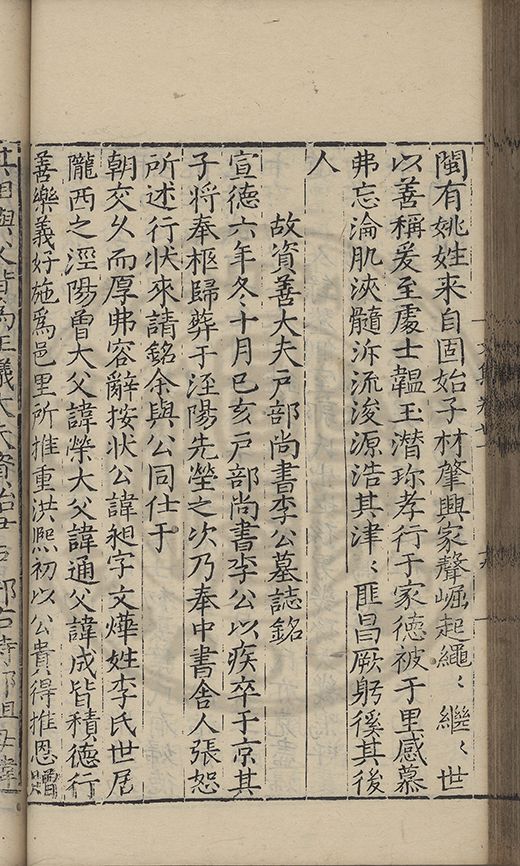 閩有姚姓来自固始子材肇興家聲崛起繩〻繼〻世
以善稱爰至處士韞玉潛珎孝行于家德被于里感慕
弗忘淪肌浹髓泝流浚源浩其津〻匪昌厥躬徯其後
人
故資善大夫戸部尚書李公墓誌銘
宣德六年冬十月己亥戸部尚書李公以疾卒于京其
子将奉柩歸葬于涇陽先塋之次乃奉中書舍人張恕
所述行状來請銘余與公同仕于
朝交久而厚弗容辭按状公諱昶字文燁姓李氏世居
隴西之涇陽曽大父諱榮大父諱通父諱成皆積德行
善樂義好施爲邑里所推重洪熈初以公貴得推恩贈